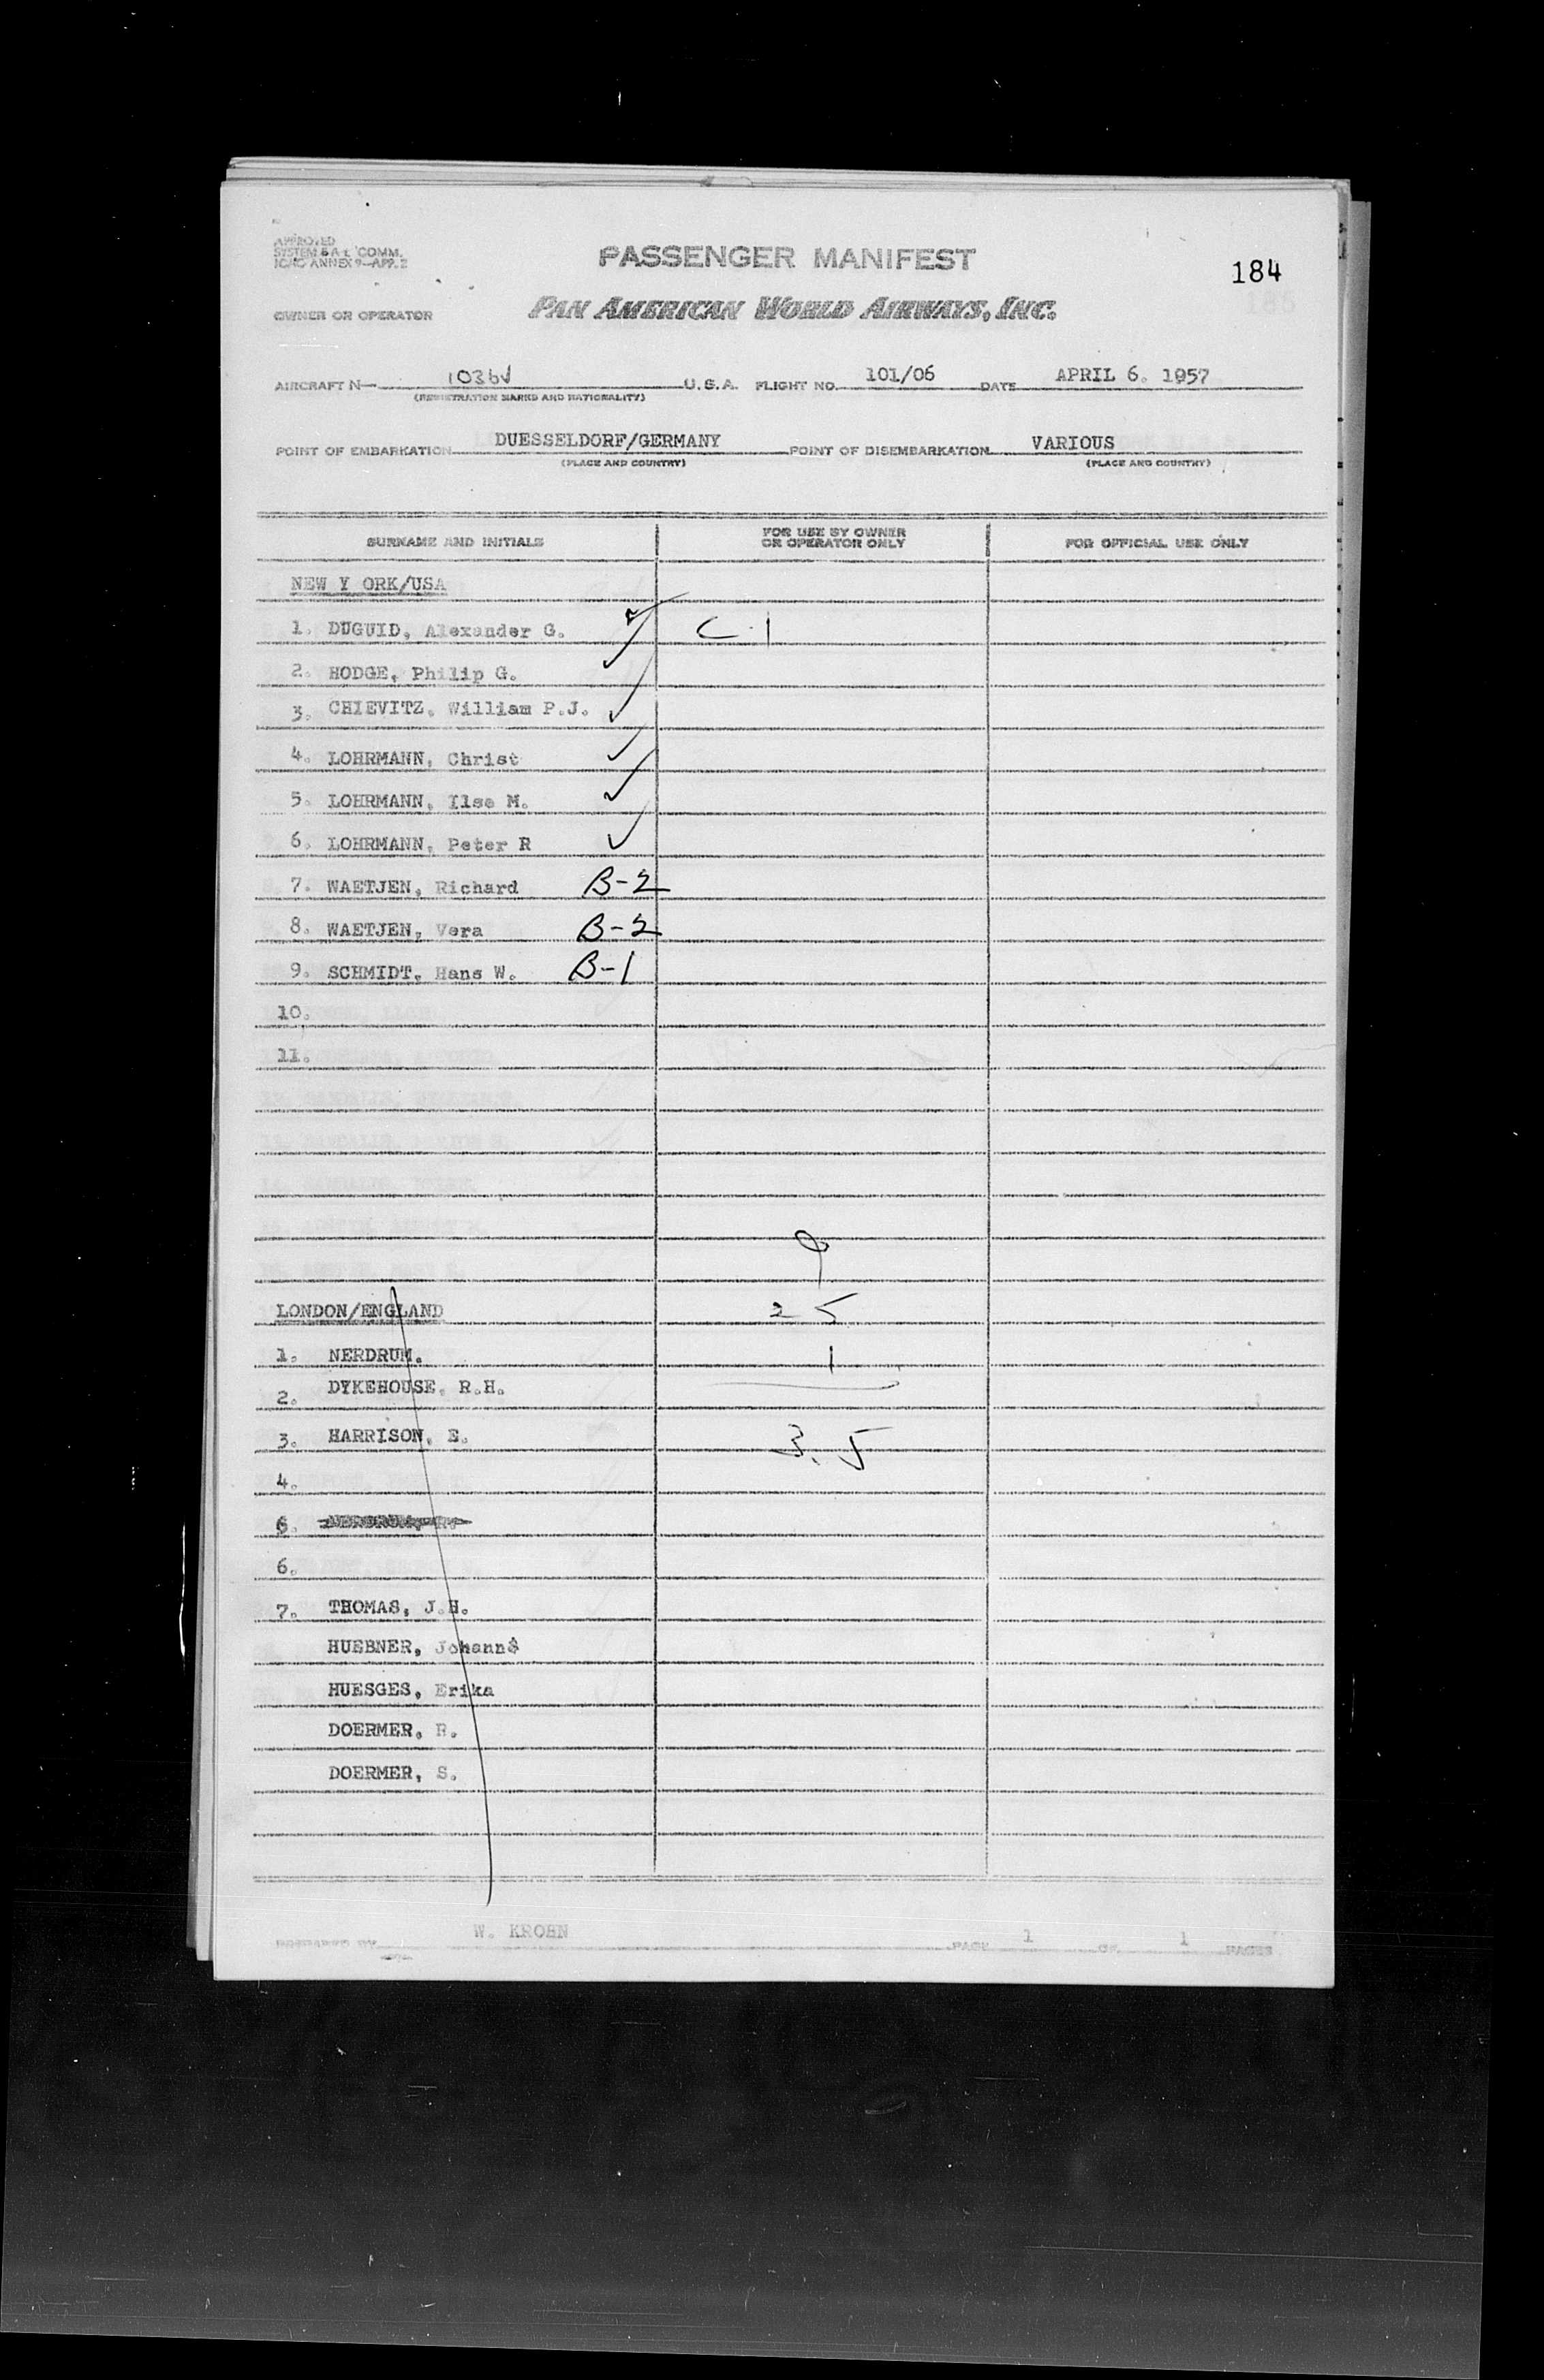 APPROVED
SYSTEM COMM.
ICAO ANNEX 9-APP. 2
PASSENGER MANIFEST
184
OWNER OR OPERATOR PAN AMERICAN WORLD AIRWAYS, INC.
AIRCRAFT N— 1036V U.S.A. FLIGHT NO. 101/06 DATE APRIL 6. 1957
(REGISTRATION MARKS AND NATIONALITY)
POINT OF EMBARKATION DUESSELDORF/GERMANY POINT OF DISEMBARKATION VARIOUS
(PLACE AND COUNTRY) (PLACE AND COUNTRY)
SURNAME AND INITIALS FOR USE BY OWNER OR OPERATOR ONLY FOR OFFICIAL USE ONLY
NEW Y ORK/USA
1. DUGUID, Alexander G. C-1
2. HODGE, Philip G.
3. CHIEVITZ, William P.J.
4. LOHRMANN, Christ
5. LOHRMANN, Ilse M.
6. LOHRMANN, Peter R
7. WAETJEN, Richard B-2
8. WAETJEN, Vera B-2
9. SCHMIDT, Hans W. B-1
10.
11.
9
LONDON/ENGLAND 25
1. NERDRUM. 1
2. DYKEHOUSE, R.H.
3. HARRISON, E. 35
4.
5.
6.
7. THOMAS, J.H.
HUEBNER, Johann
HUESGES, Erika
DOERMER, R.
DOERMER, S.
PREPARED BY W. KROHN PAGE 1 OF 1 PAGES